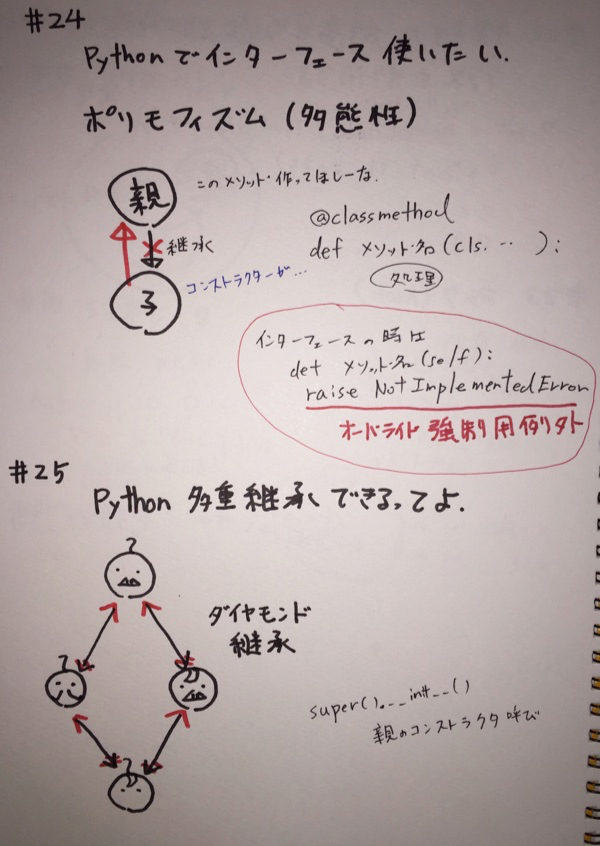 #24
Pythonでインターフェース使いたい.
ポリモフィズム(多態性)
親
このメソッド作ってほしーな.
継承
@classmethod
def メソッド名(cls. …):
処理
子
コンストラクターが…
インターフェースの時は
def メソッド名(self):
raise NotImplementedError
オーバーライド強制用例外
#25
Python 多重継承できるってよ.
ダイヤモンド
継承
super().__init__()
親のコンストラクタ呼び